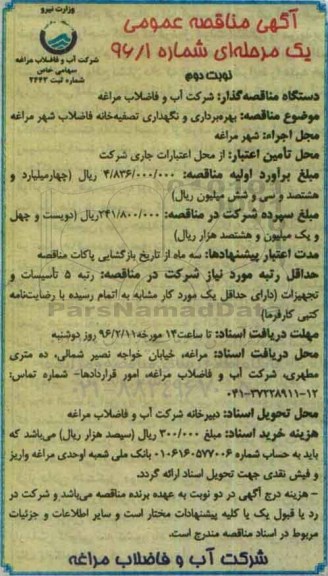 وزارت نیرو
شرکت آب و فاضلاب مراغه
سهامی خاص
شماره ثبت ۲۴۴۳
آگهی مناقصه عمومی
یک مرحله‌ای شماره ۹۶/۱
نوبت دوم
دستگاه مناقصه‌گذار: شرکت آب و فاضلاب مراغه
موضوع مناقصه: بهره‌برداری و نگهداری تصفیه‌خانه فاضلاب شهر مراغه
محل اجراء: شهر مراغه
محل تأمین اعتبار: از محل اعتبارات جاری شرکت
مبلغ برآورد اولیه مناقصه: ۴/۸۳۶/۰۰۰/۰۰۰ ریال (چهارمیلیارد و
هشتصد و سی و شش میلیون ریال)
مبلغ سپرده شرکت در مناقصه: ۲۴۱/۸۰۰/۰۰۰ریال (دویست و چهل
و یک میلیون و هشتصد هزار ریال)
مدت اعتبار پیشنهادها: سه ماه از تاریخ بازگشایی پاکات مناقصه
حداقل رتبه مورد نیاز شرکت در مناقصه: رتبه ۵ تأسیسات و
تجهیزات (دارای حداقل یک مورد کار مشابه به اتمام رسیده با رضایت‌نامه
کتبی کارفرما)
ParsNamadData
مهلت دریافت اسناد: تا ساعت۱۴ مورخه۹۶/۲/۱۱ روز دوشنبه
محل دریافت اسناد: مراغه، خیابان خواجه نصیر شمالی، ده متری
مطهری، شرکت آب و فاضلاب مراغه، امور قراردادها- شماره تماس:
۱۲-۳۷۲۲۸۹۱۱-۰۴۱
محل تحویل اسناد: دبیرخانه شرکت آب و فاضلاب مراغه
هزینه خرید اسناد: مبلغ ۳۰۰/۰۰۰ ریال (سیصد هزار ریال) می‌باشد که
باید به حساب شماره ۰۱۰۶۱۶۰۵۷۷۰۰۶ بانک ملی شعبه اوحدی مراغه واریز
و فیش نقدی جهت تحویل اسناد ارائه گردد.
- هزینه درج آگهی در دو نوبت به عهده برنده مناقصه می‌باشد و شرکت در
رد یا قبول یک یا کلیه پیشنهادات مختار است و سایر اطلاعات و جزئیات
مربوط در اسناد مناقصه مندرج است.
شرکت آب و فاضلاب مراغه